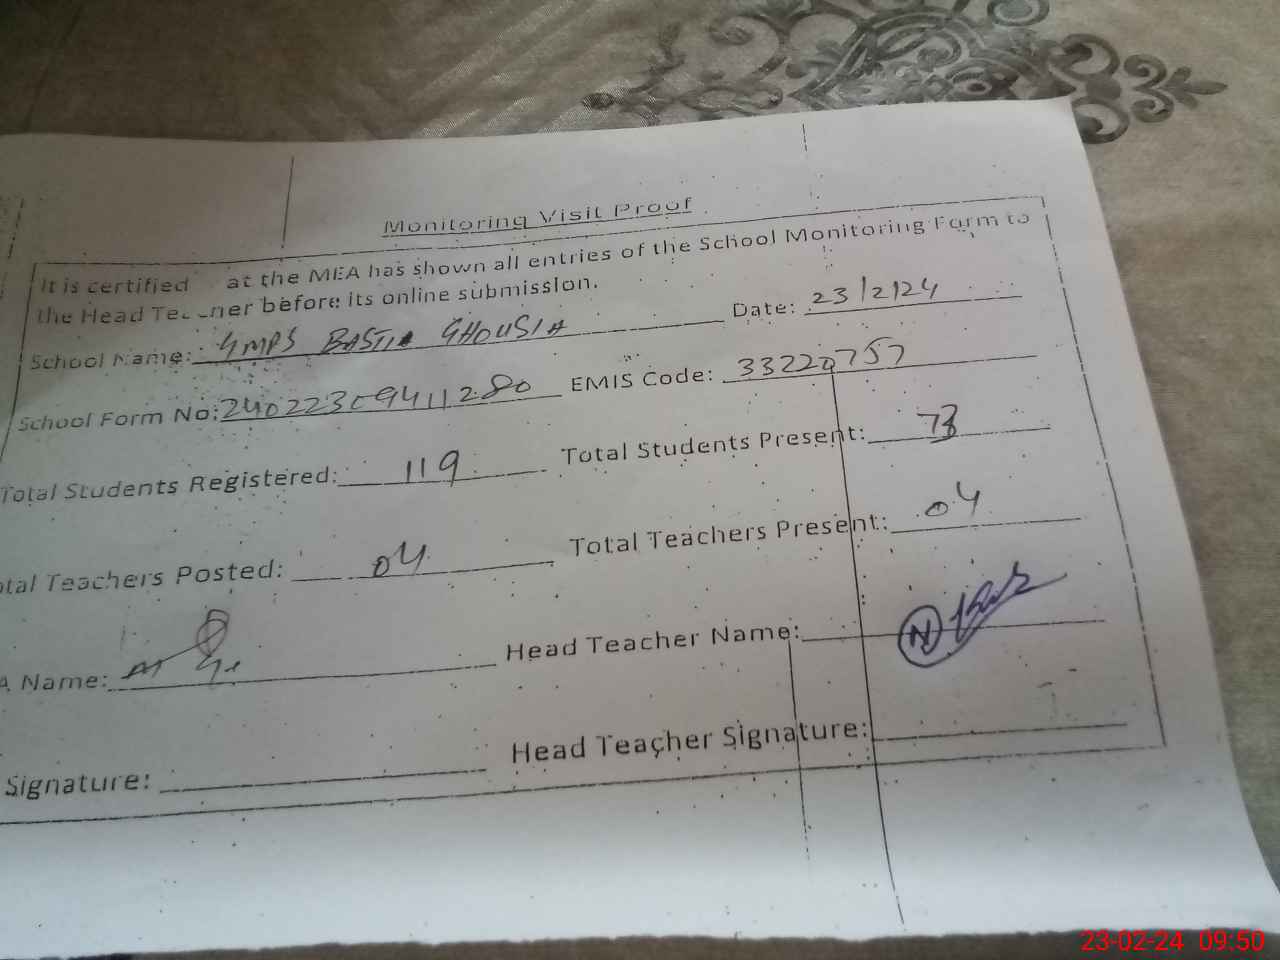 Monitoring Visit Proof
It is certified at the MEA has shown all entries of the School Monitoring Form to
the Head Te ner before its online submission.
School Name: GMPS BASTI GHOUSIA Date: 23/2/24
School Form No: 24022309411280 EMIS Code: 33220757
Total Students Registered: 119 Total Students Present: 73
otal Teachers Posted: 04 Total Teachers Present: 04
A Name: Head Teacher Name:
Signature: Head Teacher Signature:
23-02-24 09:50